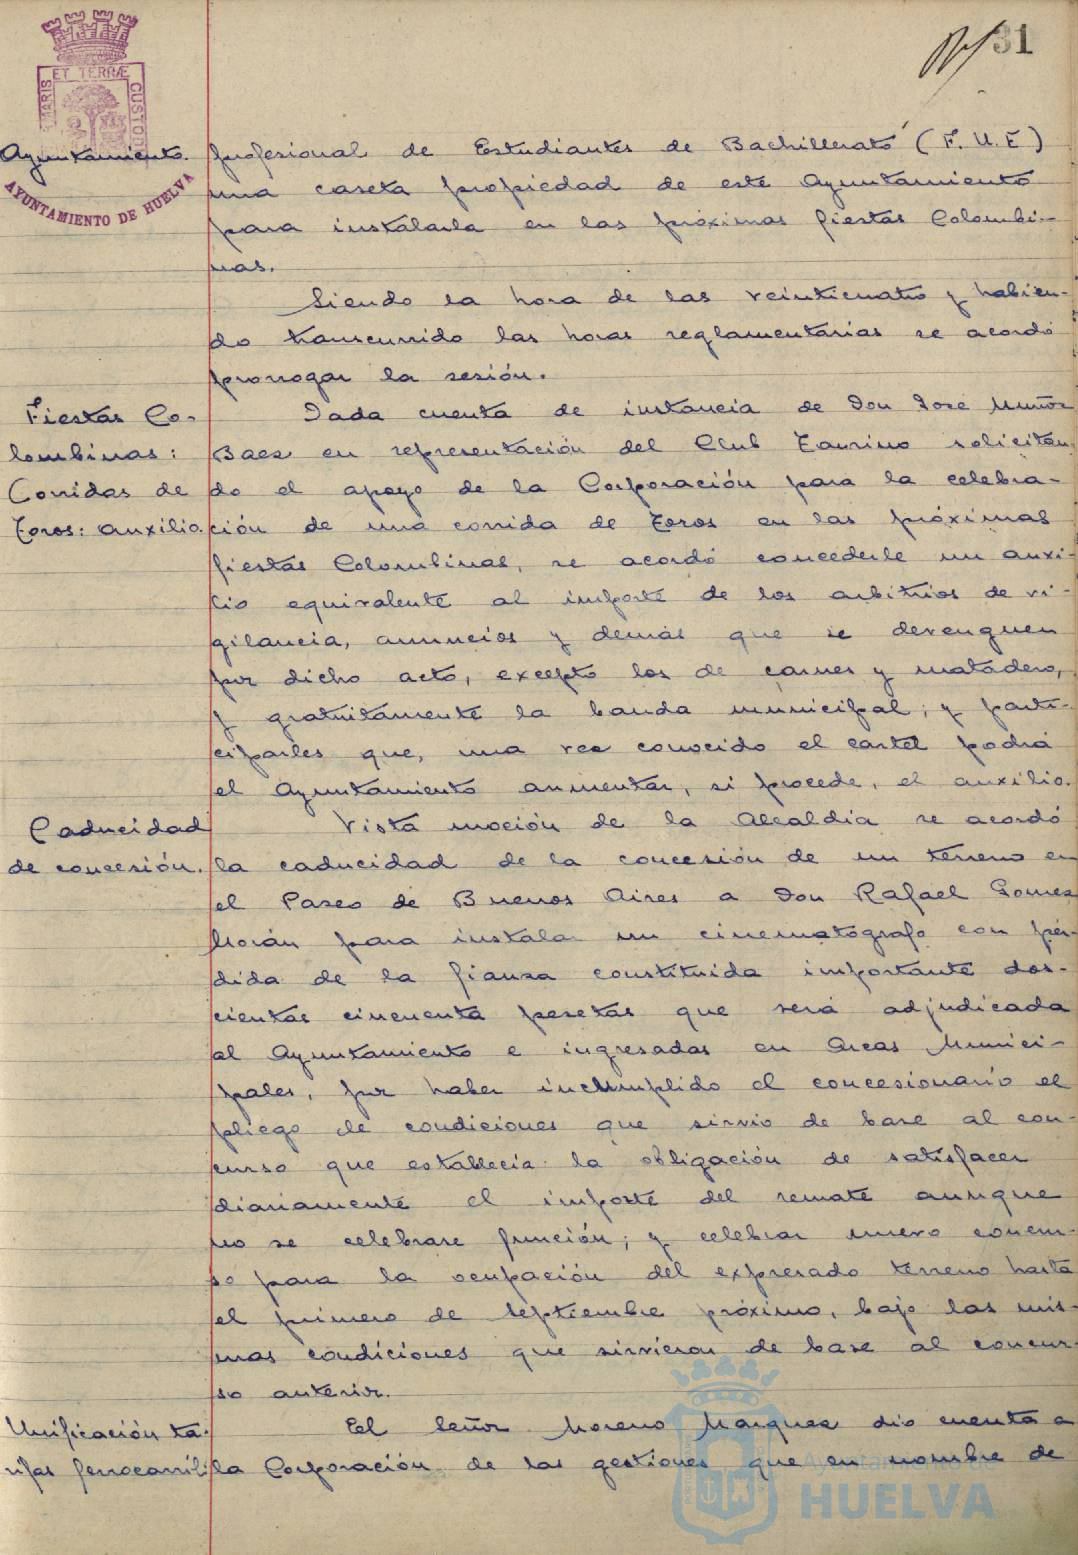 31
ET TERRÆ
MARIS
CUSTOD
AYUNTAMIENTO DE HUELVA
Ayuntamiento.
profesional de Estudiantes de Bachillerato (F. U. E)
una caseta propiedad de este Ayuntamiento
para instalarla en las próximas fiestas Colombi-
nas.
Siendo la hora de las veinticuatro y habien-
do transcurrido las horas reglamentarias se acordó
prorrogar la sesión.
Fiestas Co-
lombinas:
Corridas de
Toros: auxilio.
Dada cuenta de instancia de Don Jose Muñoz
Baez en representación del Club Taurino solicitan-
do el apoyo de la Corporación para la celebra-
ción de una corrida de Toros en las próximas
fiestas Colombinas, se acordó concederle un auxi-
lio equivalente al importe de los arbitrios de vi-
gilancia, anuncios y demás que se devenguen
por dicho acto, excepto los de carnes y matadero,
y gratuitamente la banda municipal; y parti-
ciparles que, una vez conocido el cartel podrá
el Ayuntamiento aumentar, si procede, el auxilio.
Caducidad
de concesión.
Vista moción de la Alcaldía se acordó
la caducidad de la concesión de un terreno en
el Paseo de Buenos Aires a Don Rafael Gomez
Morán para instalar un cinematógrafo con pér-
dida de la fianza constituida importante dos-
cientas cincuenta pesetas que será adjudicada
al Ayuntamiento e ingresadas en Arcas Munici-
pales, por haber incumplido el concesionario el
pliego de condiciones que sirvió de base al con-
curso que establecía la obligación de satisfacer
diariamente el importe del remate aunque
no se celebrase función; y celebrar nuevo concur-
so para la ocupación del expresado terreno hasta
el primero de Septiembre próximo, bajo las mis-
mas condiciones que sirvieron de base al concur-
so anterior.
Unificación ta-
rifas ferrocarril
El Señor Moreno Marquez dio cuenta a
la Corporación de las gestiones que en nombre de
Ayuntamiento de
HUELVA